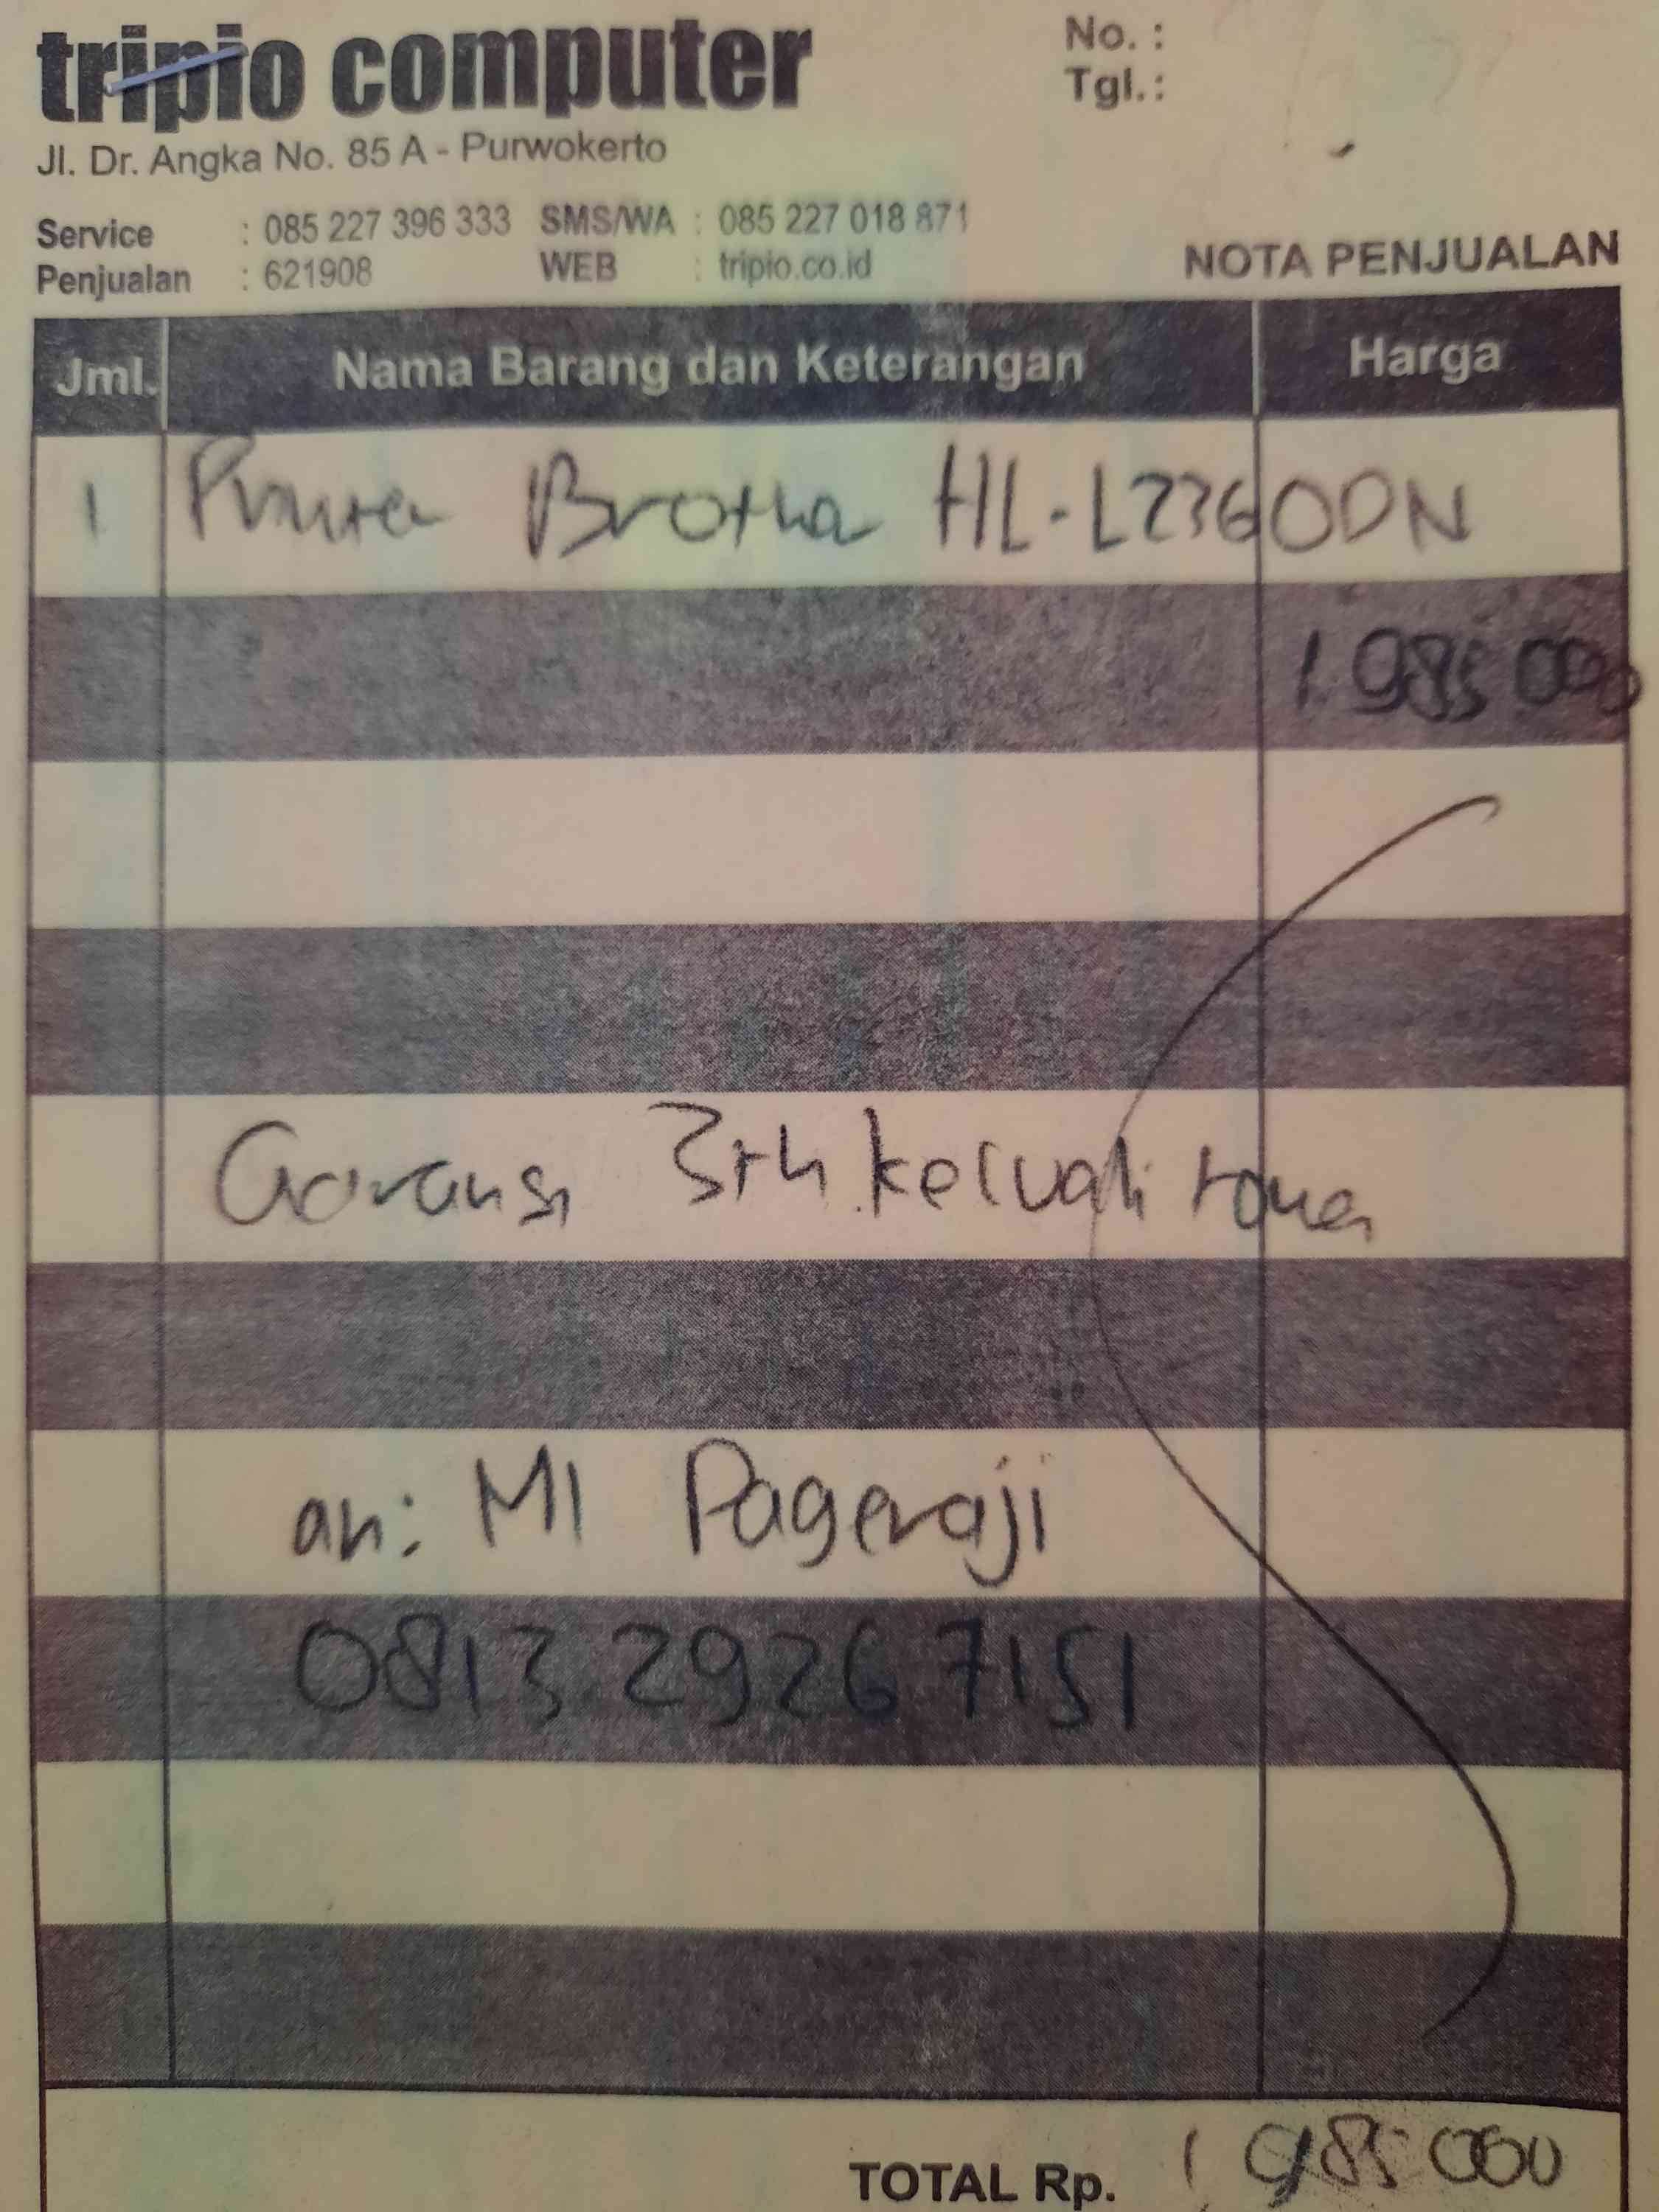 tripio computer
No. :
Tgl. :
Jl. Dr. Angka No. 85 A - Purwokerto
Service : 085 227 396 333 SMS/WA : 085 227 018 871
Penjualan : 621908 WEB : tripio.co.id
NOTA PENJUALAN
Jml. Nama Barang dan Keterangan Harga
1 Printer Brother HL-L2360DN
1.985 000
Garansi 3th kecuali toner
an: MI Pageraji
0813 2926 7151
TOTAL Rp. 1 985 000